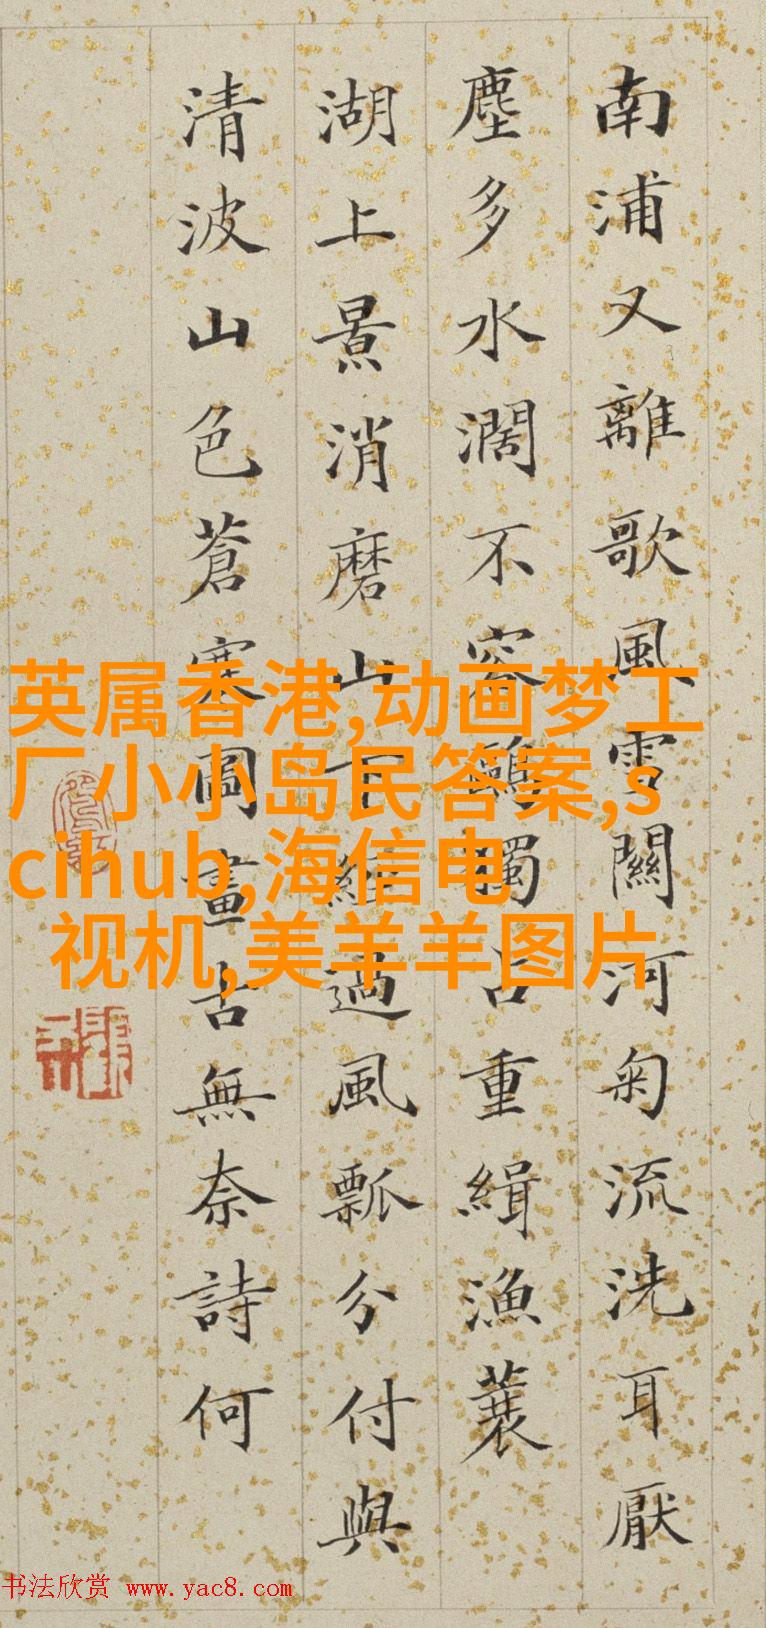 南浦又離歌風雪關河匊流洗耳厭
塵多水濶不容鷗獨占重緝漁蓑
湖上景消磨山下經過風瓢分付與
清波山色蒼寒圖畫古無奈詩何
英属香港,动画梦工
厂小小岛民答案,s
cihub,海信电
视机,美羊羊图片
书法欣赏 www.yac8.com